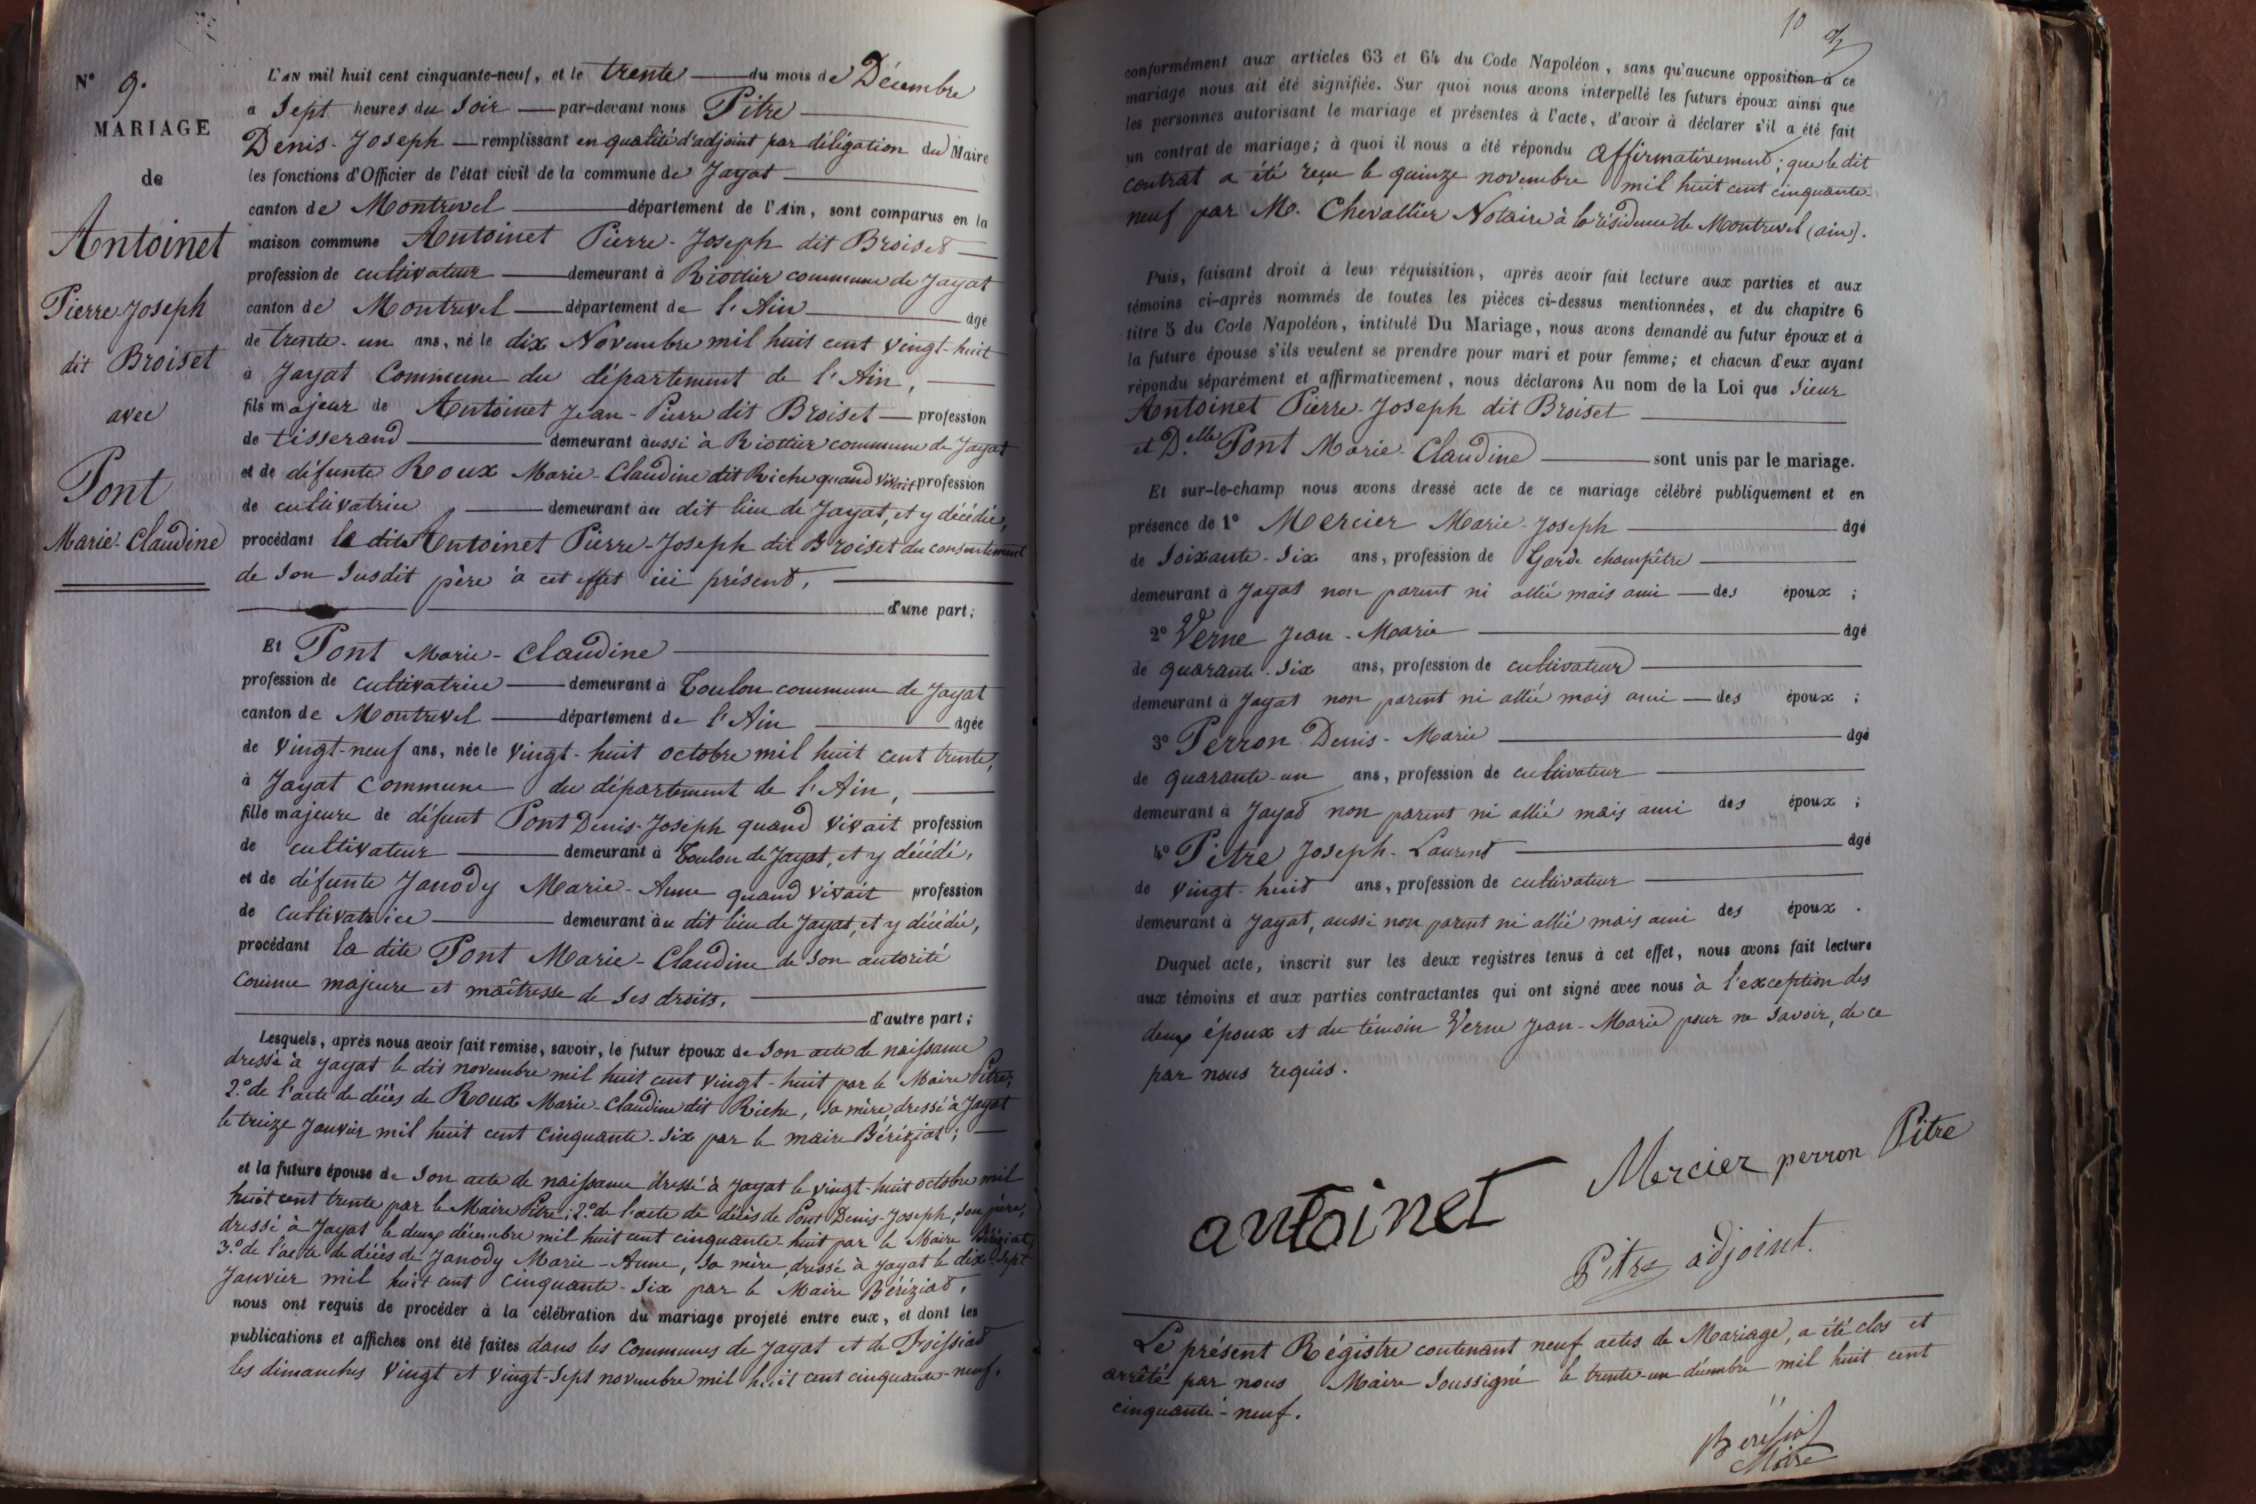 N° 9.
MARIAGE
de
Antoinet
Pierre Joseph
dit Broiset
avec
Pont
Marie-Claudine
L'an mil huit cent cinquante-neuf, et le trente du mois de Décembre
a sept heures du soir par-devant nous Pitre
Denis-Joseph remplissant en qualité d'adjoint par délégation du Maire
les fonctions d'Officier de l'état civil de la commune de Jayat
canton de Montrevel département de l'Ain, sont comparus en la
maison commune Antoinet Pierre-Joseph dit Broiset
profession de cultivateur demeurant à Riottier commune de Jayat
canton de Montrevel département de l'Ain âgé
de trente-un ans, né le dix Novembre mil huit cent vingt-huit
à Jayat Commune du département de l'Ain,
fils majeur de Antoinet Jean-Pierre dit Broiset profession
de tisserand demeurant aussi à Riottier commune de Jayat
et de défunte Roux Marie-Claudine dit Riche quand vivait profession
de cultivatrice demeurant au dit lieu de Jayat, et y décédée,
procédant le dit Antoinet Pierre-Joseph dit Broiset du consentement
de son susdit père à cet effet ici présent,
d'une part;
Et Pont Marie-Claudine
profession de cultivatrice demeurant à Toulon commune de Jayat
canton de Montrevel département de l'Ain âgée
de vingt-neuf ans, née le vingt-huit octobre mil huit cent trente,
à Jayat Commune du département de l'Ain,
fille majeure de défunt Pont Denis-Joseph quand vivait profession
de cultivateur demeurant à Toulon de Jayat, et y décédé,
et de défunte Janody Marie-Anne quand vivait profession
de cultivatrice demeurant au dit lieu de Jayat, et y décédée,
procédant la dite Pont Marie-Claudine de son autorité
comme majeure et maîtresse de ses droits,
d'autre part;
Lesquels, après nous avoir fait remise, savoir, le futur époux de son acte de naissance
dressé à Jayat le dix novembre mil huit cent vingt-huit par le Maire Pitre;
2.° de l'acte de décès de Roux Marie-Claudine dit Riche, sa mère, dressé à Jayat
le treize Janvier mil huit cent cinquante-six par le maire Bériziat;
et la future épouse de son acte de naissance dressé à Jayat le vingt-huit octobre mil
huit cent trente par le Maire Pitre; 2.° de l'acte de décès de Pont Denis-Joseph, son père,
dressé à Jayat le deux décembre mil huit cent cinquante-huit par le Maire Bériziat,
3.° de l'acte de décès de Janody Marie-Anne, sa mère, dressé à Jayat le dix-sept
Janvier mil huit cent cinquante-six par le Maire Bériziat,
nous ont requis de procéder à la célébration du mariage projeté entre eux, et dont les
publications et affiches ont été faites dans les Communes de Jayat et de Foissiat
les dimanches vingt et vingt-sept novembre mil huit cent cinquante-neuf,
10
conformément aux articles 63 et 64 du Code Napoléon, sans qu'aucune opposition à ce
mariage nous ait été signifiée. Sur quoi nous avons interpellé les futurs époux ainsi que
les personnes autorisant le mariage et présentes à l'acte, d'avoir à déclarer s'il a été fait
un contrat de mariage; à quoi il nous a été répondu affirmativement; que le dit
contrat a été reçu le quinze novembre mil huit cent cinquante-
neuf par M. Chevallier Notaire à la résidence de Montrevel (ain).
Puis, faisant droit à leur réquisition, après avoir fait lecture aux parties et aux
témoins ci-après nommés de toutes les pièces ci-dessus mentionnées, et du chapitre 6
titre 5 du Code Napoléon, intitulé Du Mariage, nous avons demandé au futur époux et à
la future épouse s'ils veulent se prendre pour mari et pour femme; et chacun d'eux ayant
répondu séparément et affirmativement, nous déclarons Au nom de la Loi que Sieur
Antoinet Pierre-Joseph dit Broiset
et D.elle Pont Marie-Claudine sont unis par le mariage.
Et sur-le-champ nous avons dressé acte de ce mariage célébré publiquement et en
présence de 1° Mercier Marie-Joseph âgé
de soixante-six ans, profession de Garde champêtre
demeurant à Jayat non parent ni allié mais ami des époux;
2° Verne Jean-Marie âgé
de quarante-six ans, profession de cultivateur
demeurant à Jayat non parent ni allié mais ami des époux;
3° Perron Denis-Marie âgé
de quarante-un ans, profession de cultivateur
demeurant à Jayat non parent ni allié mais ami des époux;
4° Pitre Joseph-Laurent âgé
de vingt-huit ans, profession de cultivateur
demeurant à Jayat, aussi non parent ni allié mais ami des époux.
Duquel acte, inscrit sur les deux registres tenus à cet effet, nous avons fait lecture
aux témoins et aux parties contractantes qui ont signé avec nous à l'exception des
deux époux et du témoin Verne Jean-Marie pour ne savoir, de ce
par nous requis.
antoinet Mercier perron Pitre
Pitre adjoint.
Le présent Régistre contenant neuf actes de Mariage, a été clos et
arrêté par nous Maire soussigné le trente-un décembre mil huit cent
cinquante-neuf.
Bériziat
Maire